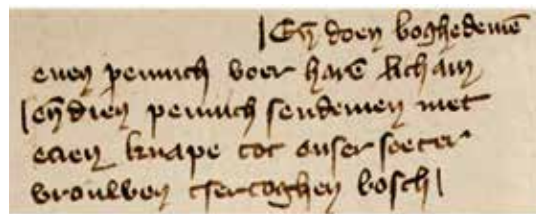 |En̄ doen boghedemē
enen penninch voer harē licham
|en̄ dien penninch sendemen met
enen knape tot onser soeter
vrouwen tsertoghen bosch|